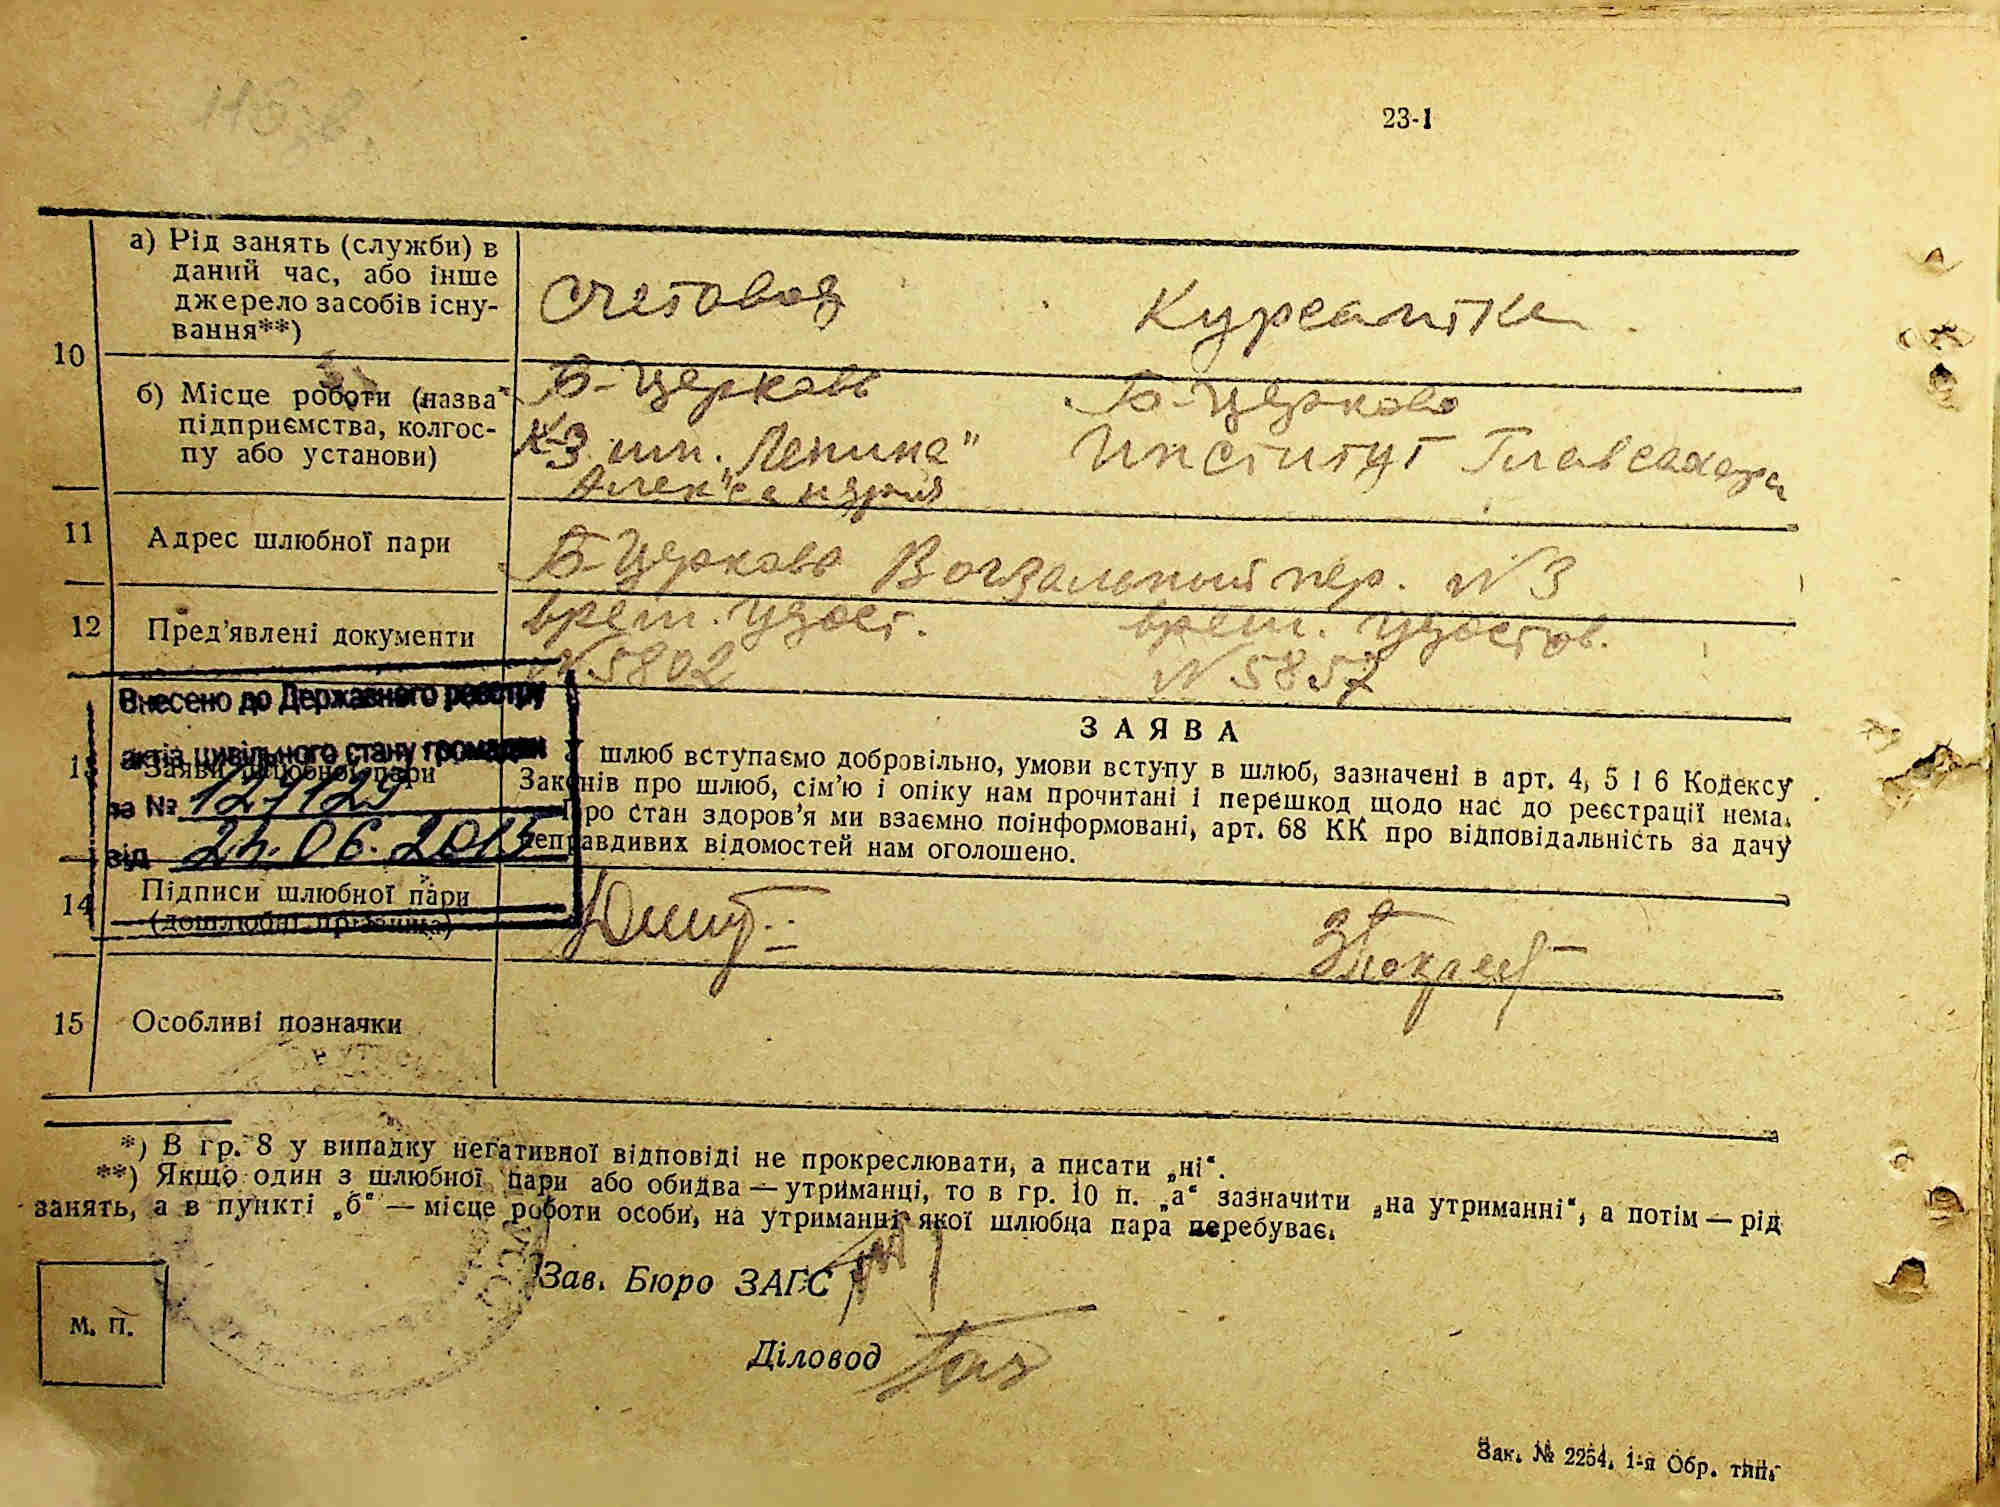 23-1
10
а) Рід занять (служби) в
даний час, або інше
джерело засобів існу-
вання**)
Счетовод
Курсантка
б) Місце роботи (назва
підприємства, колгос-
пу або установи)
Б-Церковь
К-З им. „Ленина"
Александрия
Б-Церковь
Институт Главсахара
11
Адрес шлюбної пари
Б-Церковь Вокзальный пер. № 3
12
Пред'явлені документи
врем. удост.
№ 5802
врем. удостов.
№ 5857
Внесено до Державного реєстру
актів цивільного стану громадян
за №
від
13
Заяви шлюбної пари
ЗАЯВА
У шлюб вступаємо добровільно, умови вступу в шлюб, зазначені в арт. 4, 5 і 6 Кодексу
Законів про шлюб, сім'ю і опіку нам прочитані і перешкод щодо нас до реєстрації нема.
Про стан здоров'я ми взаємно поінформовані, арт. 68 КК про відповідальність за дачу
неправдивих відомостей нам оголошено.
14
Підписи шлюбної пари
(дошлюбні прізвища)
15
Особливі позначки
*) В гр. 8 у випадку негативної відповіді не прокреслювати, а писати „ні".
**) Якщо один з шлюбної пари або обидва — утриманці, то в гр. 10 п. „а" зазначити „на утриманні", а потім — рід
занять, а в пункті „б" — місце роботи особи, на утриманні якої шлюбна пара перебуває.
Зав. Бюро ЗАГС
М. П.
Діловод
Зак. № 2254. 1-я Обр. тип.